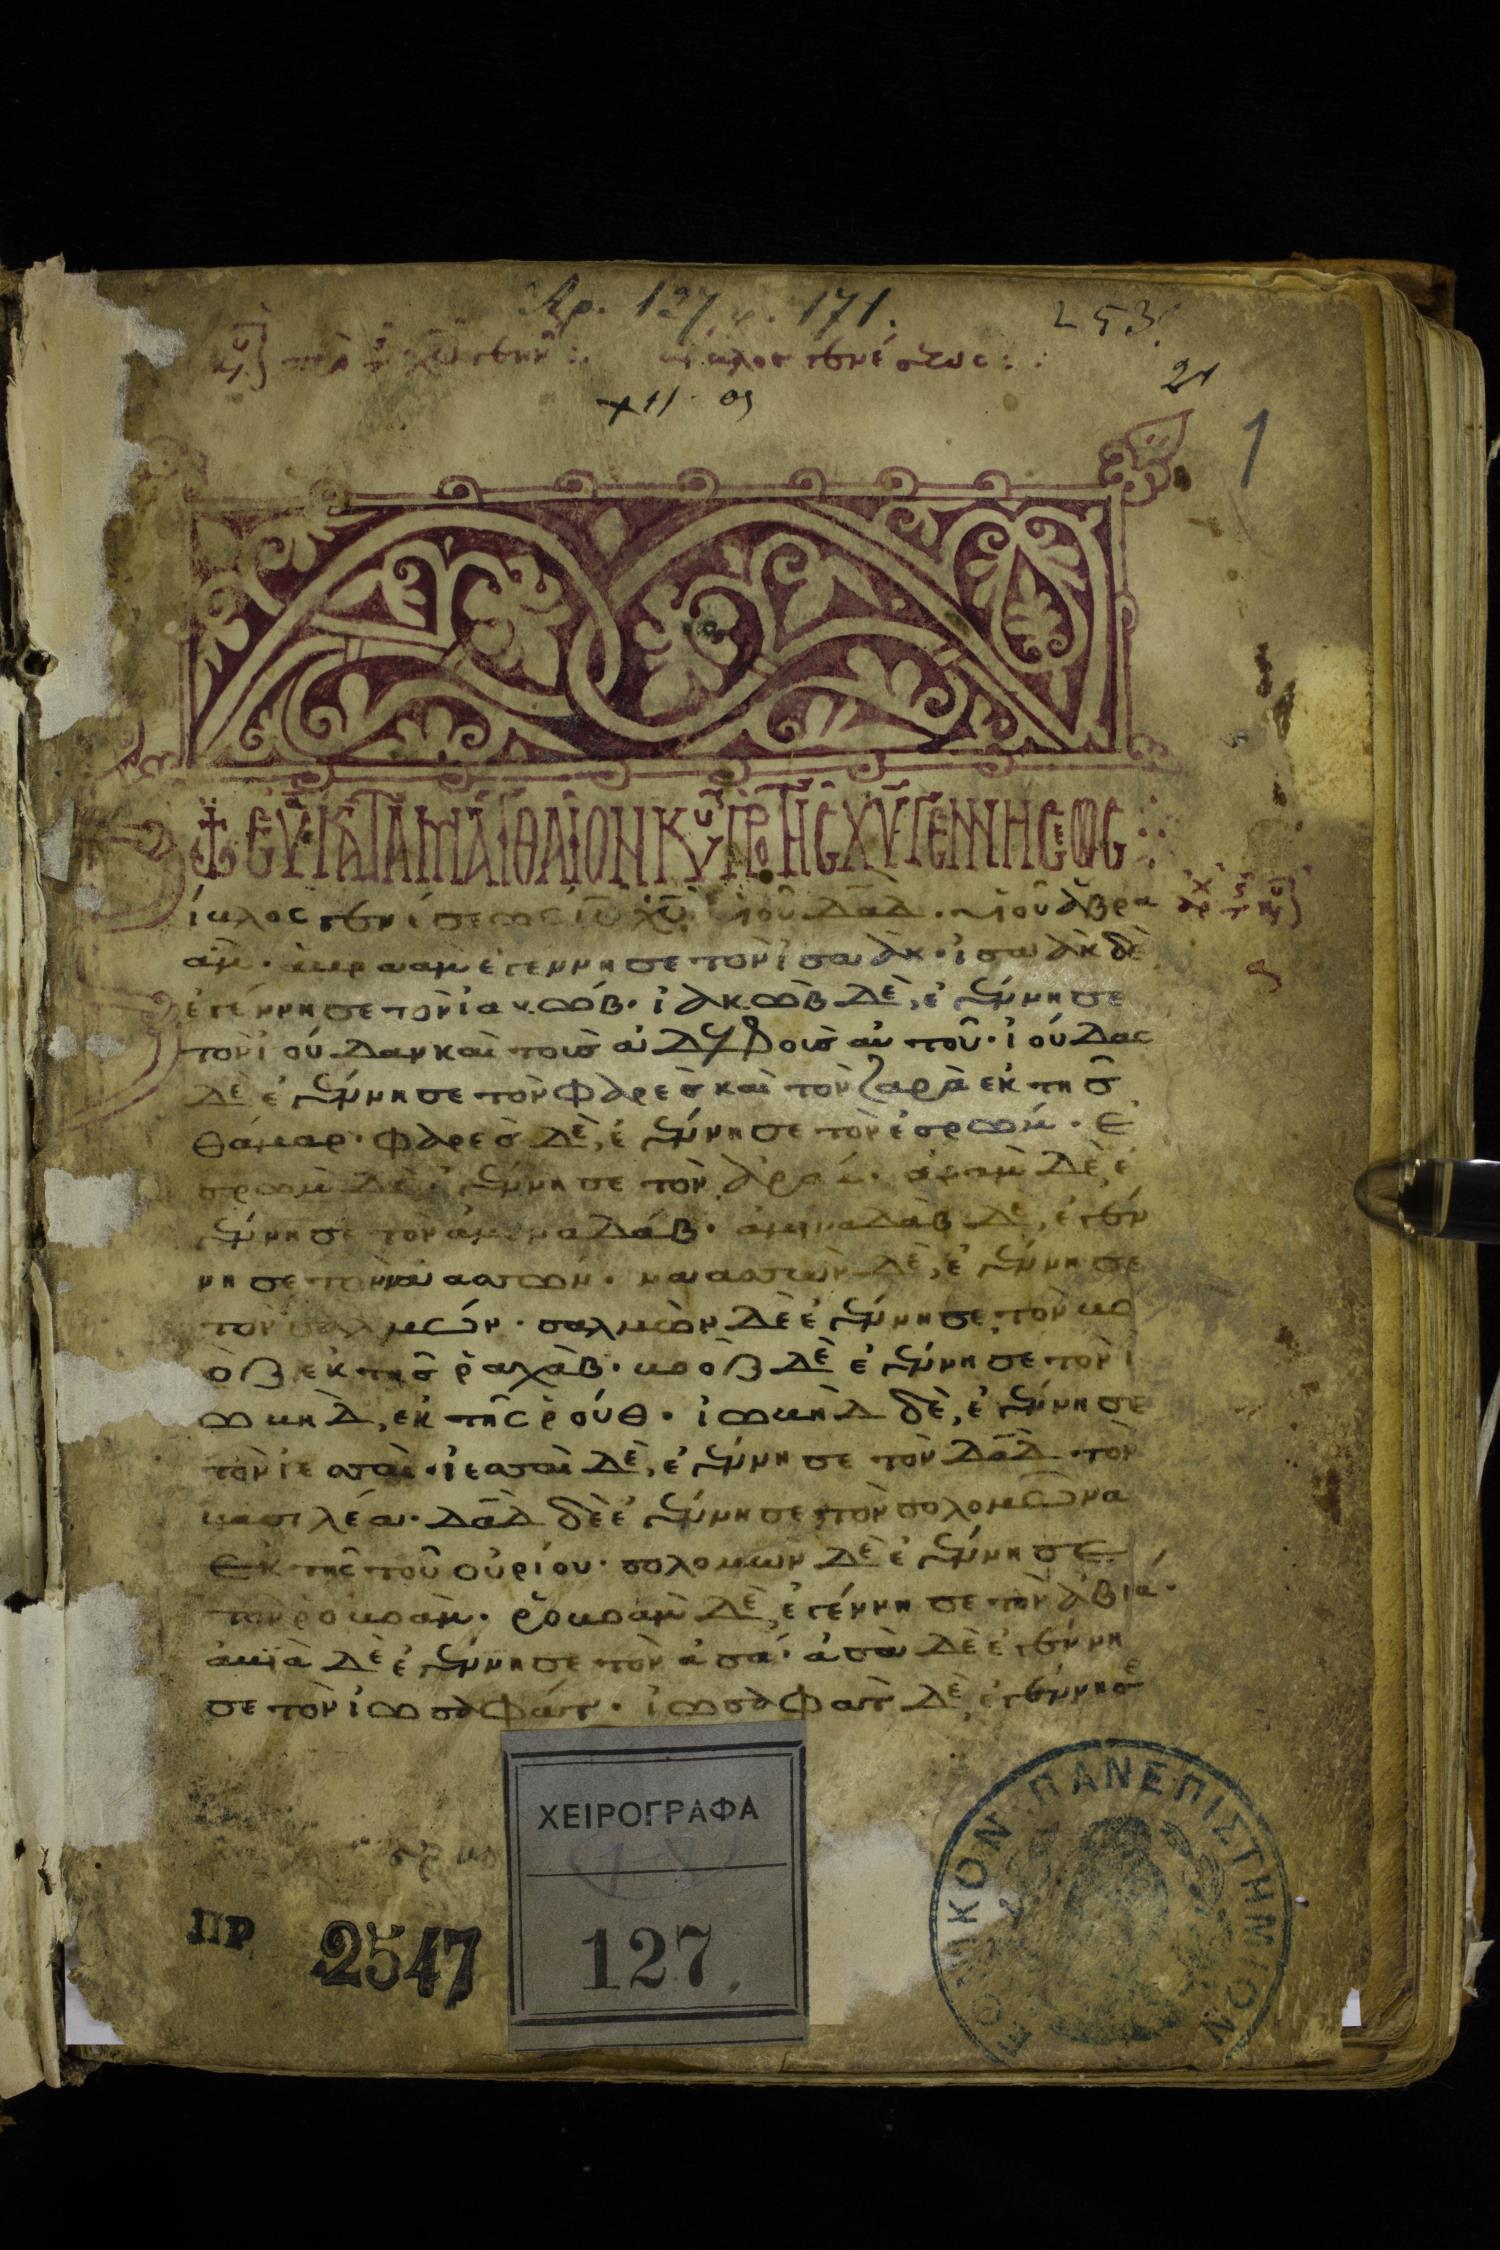 127 171.
253
βίβλος γενέσεως :
XII
21
1
✝ ΕΥΑ ΚΑΤΑ ΜΑΤΘΑΙΟΝ ΚΥ ΠΡ ΤΗΣ ΧΥ ΓΕΝΝΗΣΕΩΣ
ίβλος γενέσεως ιυ χυ υιοῦ δαδ. υιοῦ ἀβρα
ὰμ. ἀβρααμ ἐγεννησε τὸν ἰσαὰκ. ἰσαὰκ δὲ
ἐγέννησε τὸν ἰακωβ. ἰακὼβ δὲ, ἐγέννησε
τὸν ἰούδαν και τους ἀδελφους αυτοῦ. ἰούδας
δὲ ἐγέννησε τὸν φάρες και τὸν ζαρὰ εκ της
θάμαρ. φάρες δὲ, ἐγέννησε τὸν ἐσρώμ. ἐ
σρωμ δὲ ἐγέννησε τὸν ἀράμ. ἀραμ δὲ, ἐ
γέννησε τὸν ἀμιναδάβ. ἀμιναδαβ δὲ, ἐγέν
νησε τὸν ναασσών. ναασσὼν δὲ, ἐγέννησε
τὸν σαλμών. σαλμὼν δὲ ἐγέννησε, τὸν βο
ὸζ ἐκ τῆς ῥαχὰβ. βοὸζ δὲ ἐγέννησε τὸν ἰ
ωβὴδ, ἐκ τῆς ῥούθ. ἰωβὴδ δὲ, ἐγέννησε
τὸν ἰεσσαὶ. ἰεσσαὶ δὲ, ἐγέννησε τὸν δαδ τὸν
βασιλέα. δαδ δὲ ἐγέννησε τὸν σολομῶνα
ἐκ τῆς τοῦ οὐρίου. σολομων δὲ ἐγέννησε
τὸν ῥοβοὰμ. ῥοβοὰμ δὲ, ἐγέννησε τὸν ἀβιά.
ἀβιὰ δὲ ἐγέννησε τὸν ἀσά. ἀσὰ δὲ ἐγέννη
σε τὸν ἰωσαφάτ. ἰωσαφατ δὲ, ἐγέννησε
ΧΕΙΡΟΓΡΑΦΑ
127.
ΠΡ 2547
ΕΘΝΙΚΟΝ ΠΑΝΕΠΙΣΤΗΜΙΟΝ